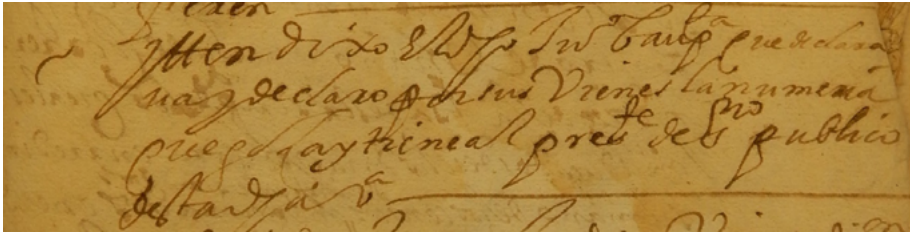 Itten dixo El dho Juº baupᵃ que declara
ua y declaro por sus Vienes la numeria
que goza y tiene al presᵗᵉ de esⁿᵒ publico
desta dha vᵃ